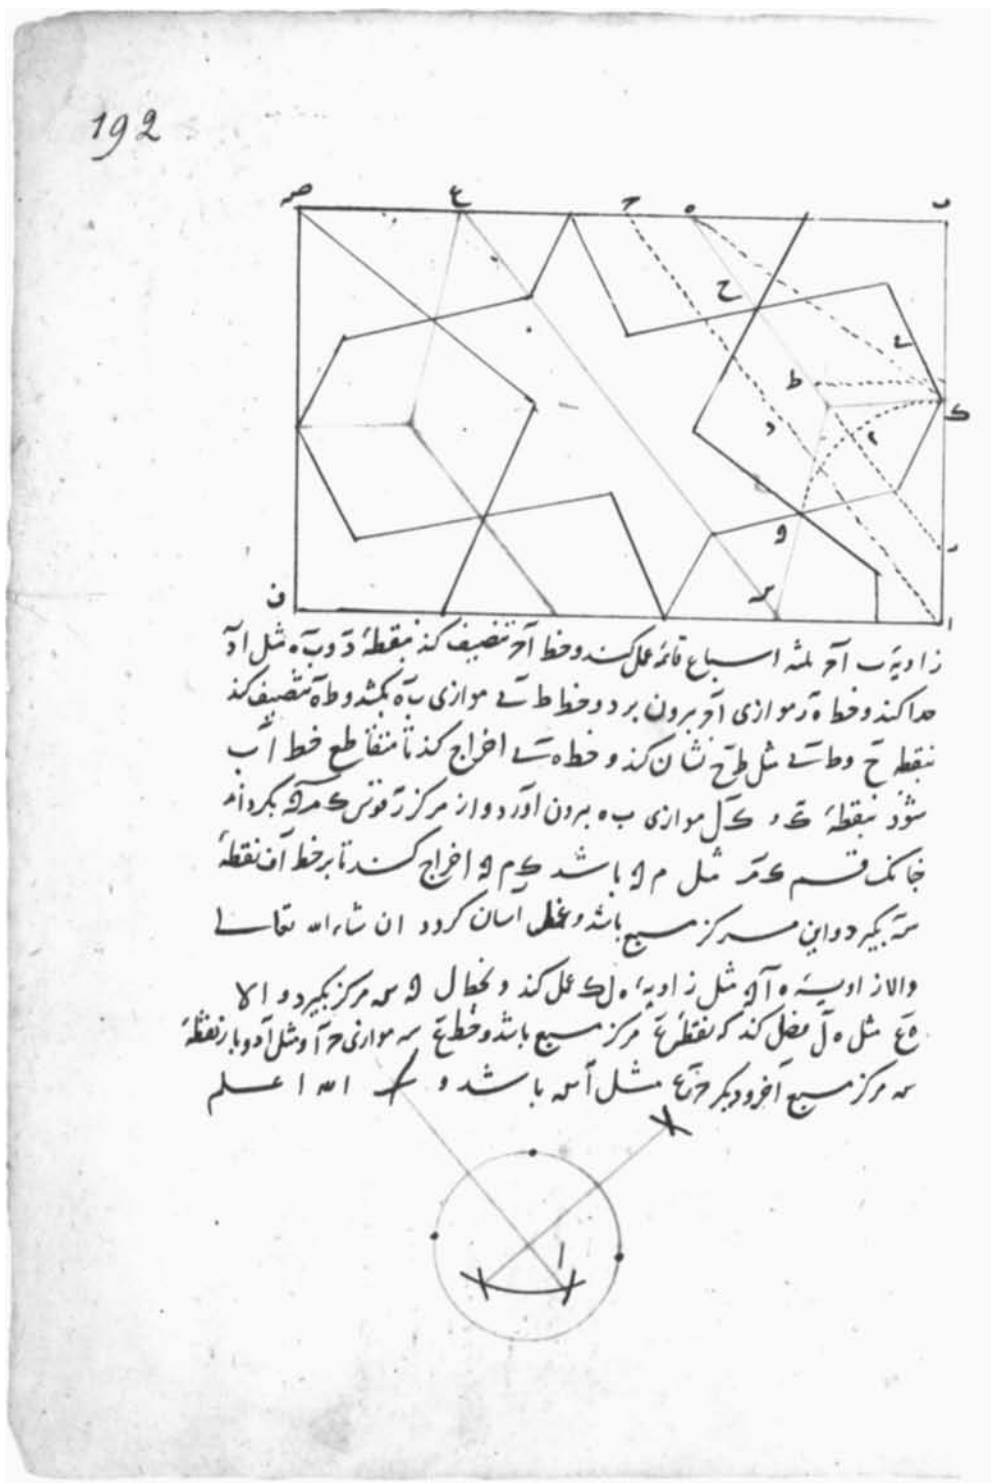 192
صـ ع ح ه ب
ح ے ط ک د م و ر س ا ف
زاویهٔ ب آح ثلثه اسباع قائمه عمل کنند و خط آح تنصیف کند بنقطهٔ د و ب ه مثل اد
جدا کند و خط ه ر موازی آح برون برد و خط ط ے موازی ب ه بکشد و ط ه تنصیف کند
بنقطهٔ ح و ط ے مثل ط ح نشان کند و خط ه ے اخراج کند تا متقاطع خط اب
شود بنقطهٔ ک و ک ل موازی ب ه برون آورد و از مرکز ر قوس ک م و بگرداند
چنانک قسم ک م مثل م و باشد و اخراج کنند تا بر خط اف نقطهٔ
س بگیرد و این مرکز مسبع باشد و آسان گردد ان شاء الله تعالی
والا زاویهٔ ه ا مثل زاویهٔ ه ل ک عمل کند و بخط ل و س مرکز بگیرد و الا
ه ع مثل ه ل فصل کند که نقطهٔ ع مرکز مسبع باشد و خط ع س موازی ح ا و مثل اد و باز نقطهٔ
س مرکز مسبع آخر و دیگر ح ع مثل اس باشد و الله اعلم
ا